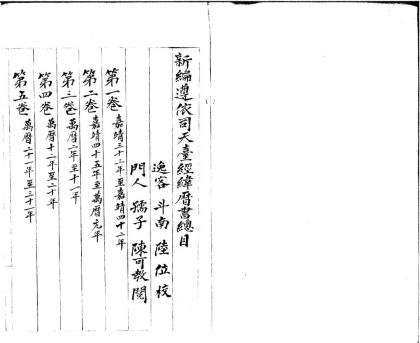 新編遵依司天臺經緯曆書總目
逸客 斗南 陸位 校
門人 孺子 陳可敎 閱
第一卷 嘉靖三十三年至嘉靖四十二年
第二卷 嘉靖四十五年至萬曆元年
第三卷 萬曆二年至十一年
第四卷 萬曆十二年至二十年
第五卷 萬曆二十一年至三十一年